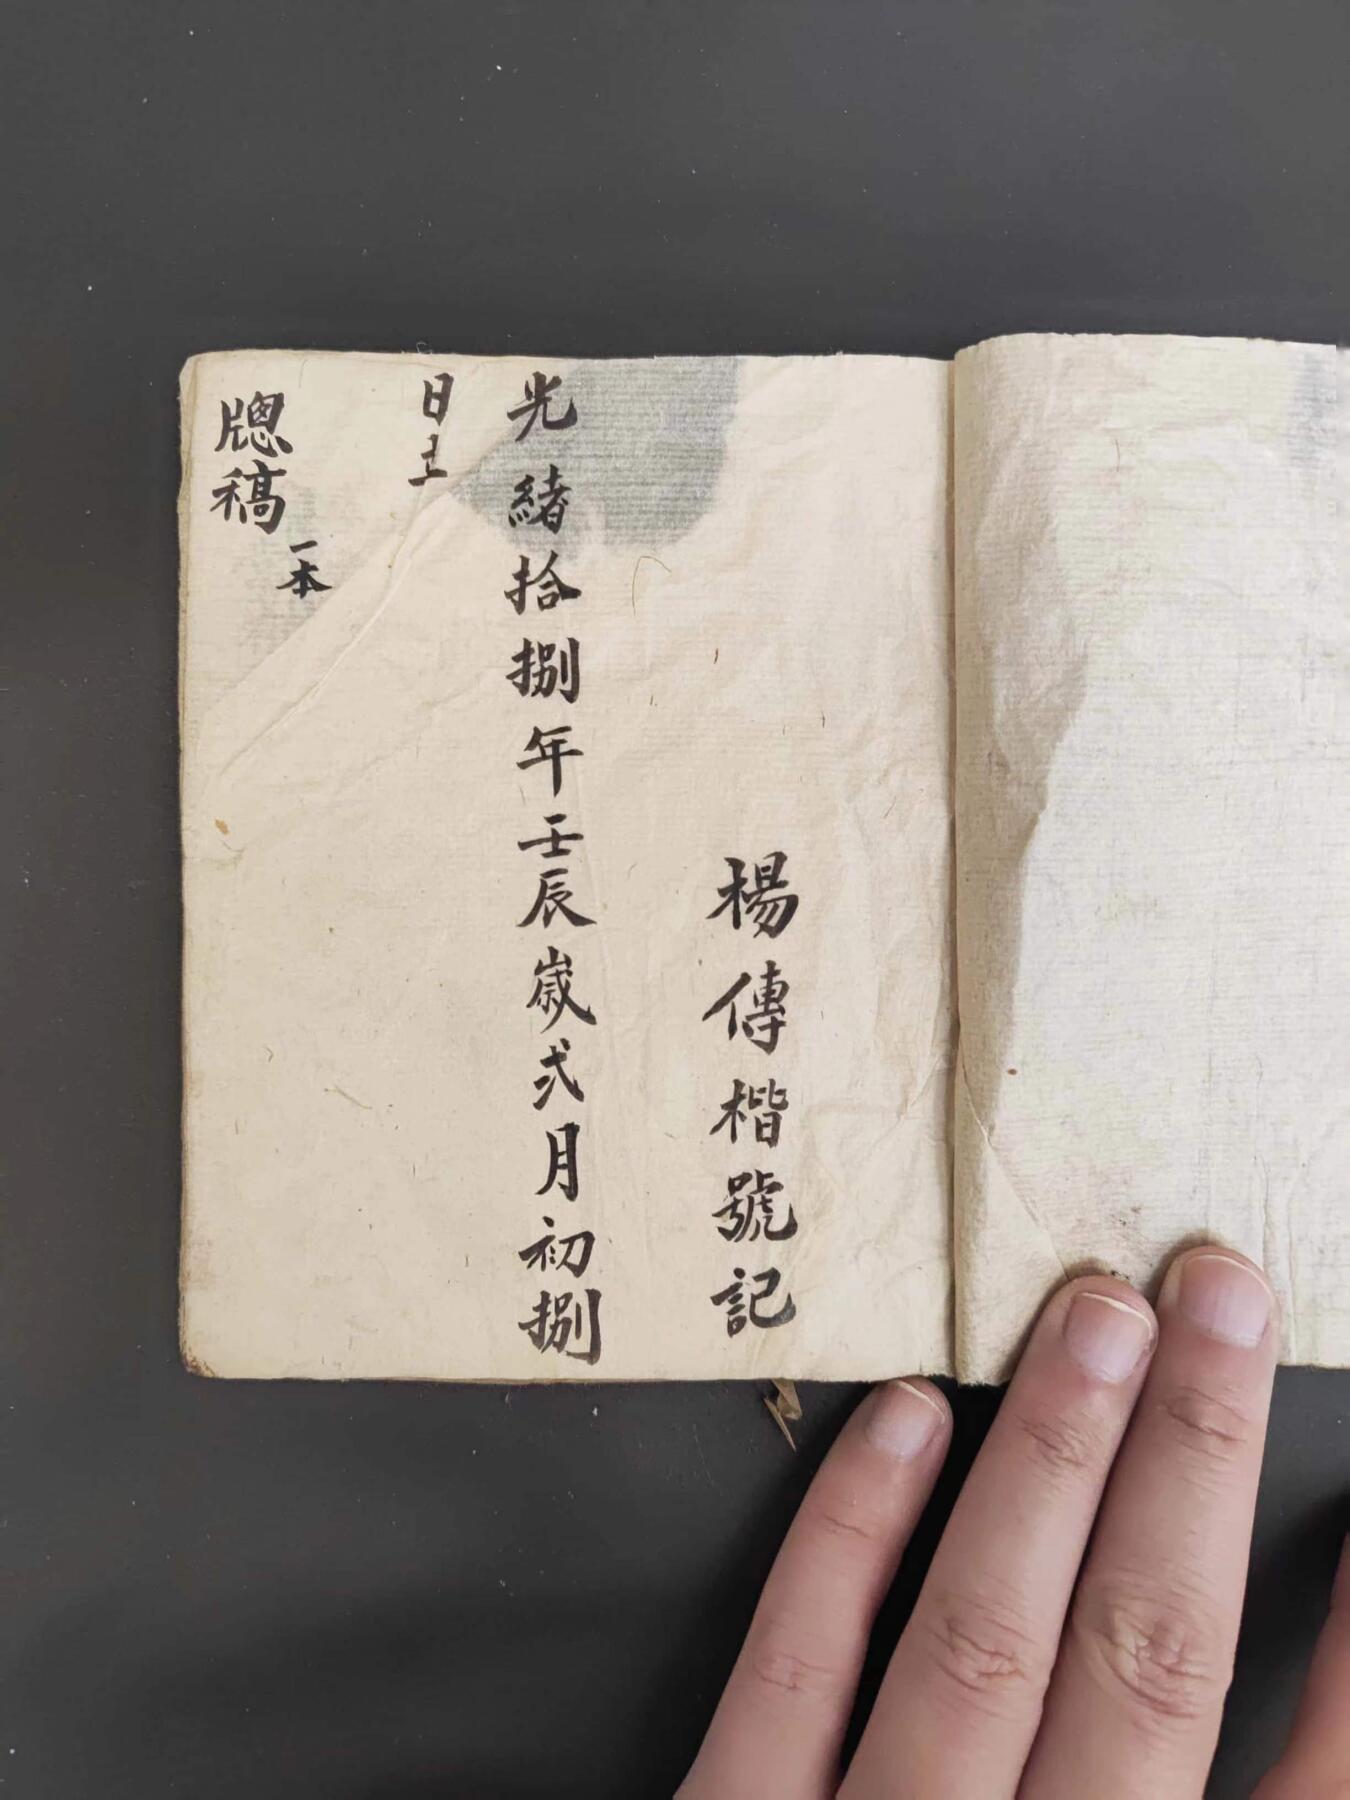 楊傳楷號記
光緒拾捌年壬辰歲弍月初捌
日立
牕稿
一本